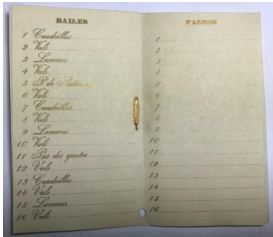 BAILES
1 Cuadrillas
2 Vals
3 Lanceros
4 Vals
5 P. de
6 Vals
7 Cuadrillas
8 Vals
9 Lanceros
10 Vals
11 Pas des quatre
12 Vals
13 Cuadrillas
14 Vals
15 Lanceros
16 Vals
PASEOS
1
2
3
4
5
6
7
8
9
10
11
12
13
14
15
16